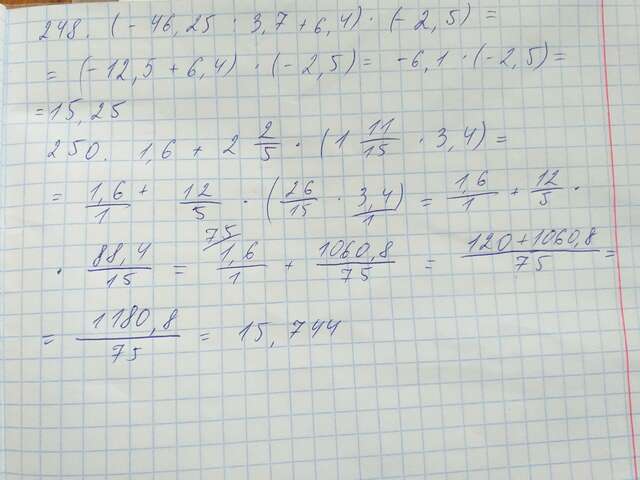 248. (- 46,25 : 3,7 + 6,4) · (- 2,5) =
= (-12,5 + 6,4) · (-2,5) = -6,1 · (-2,5) =
= 15,25
250. 1,6 + 2 2/5 · (1 11/15 · 3,4) =
= 1,6/1 + 12/5 · (26/15 · 3,4/1) = 1,6/1 + 12/5 ·
· 88,4/15 = 75/ 1,6/1 + 1060,8/75 = 120+1060,8/75 =
= 1180,8/75 = 15,744